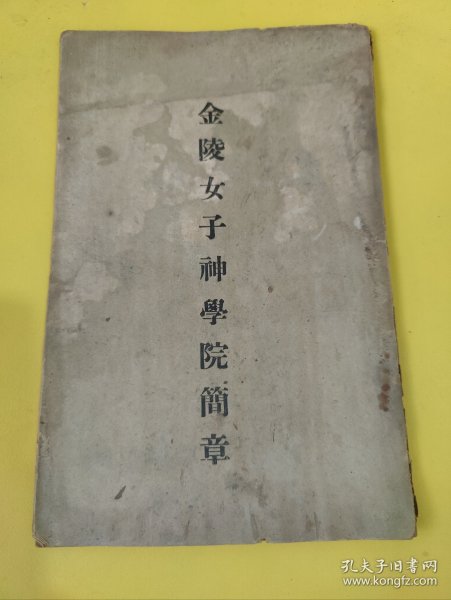 金陵女子神學院簡章
孔夫子旧书网
www.kongfz.com